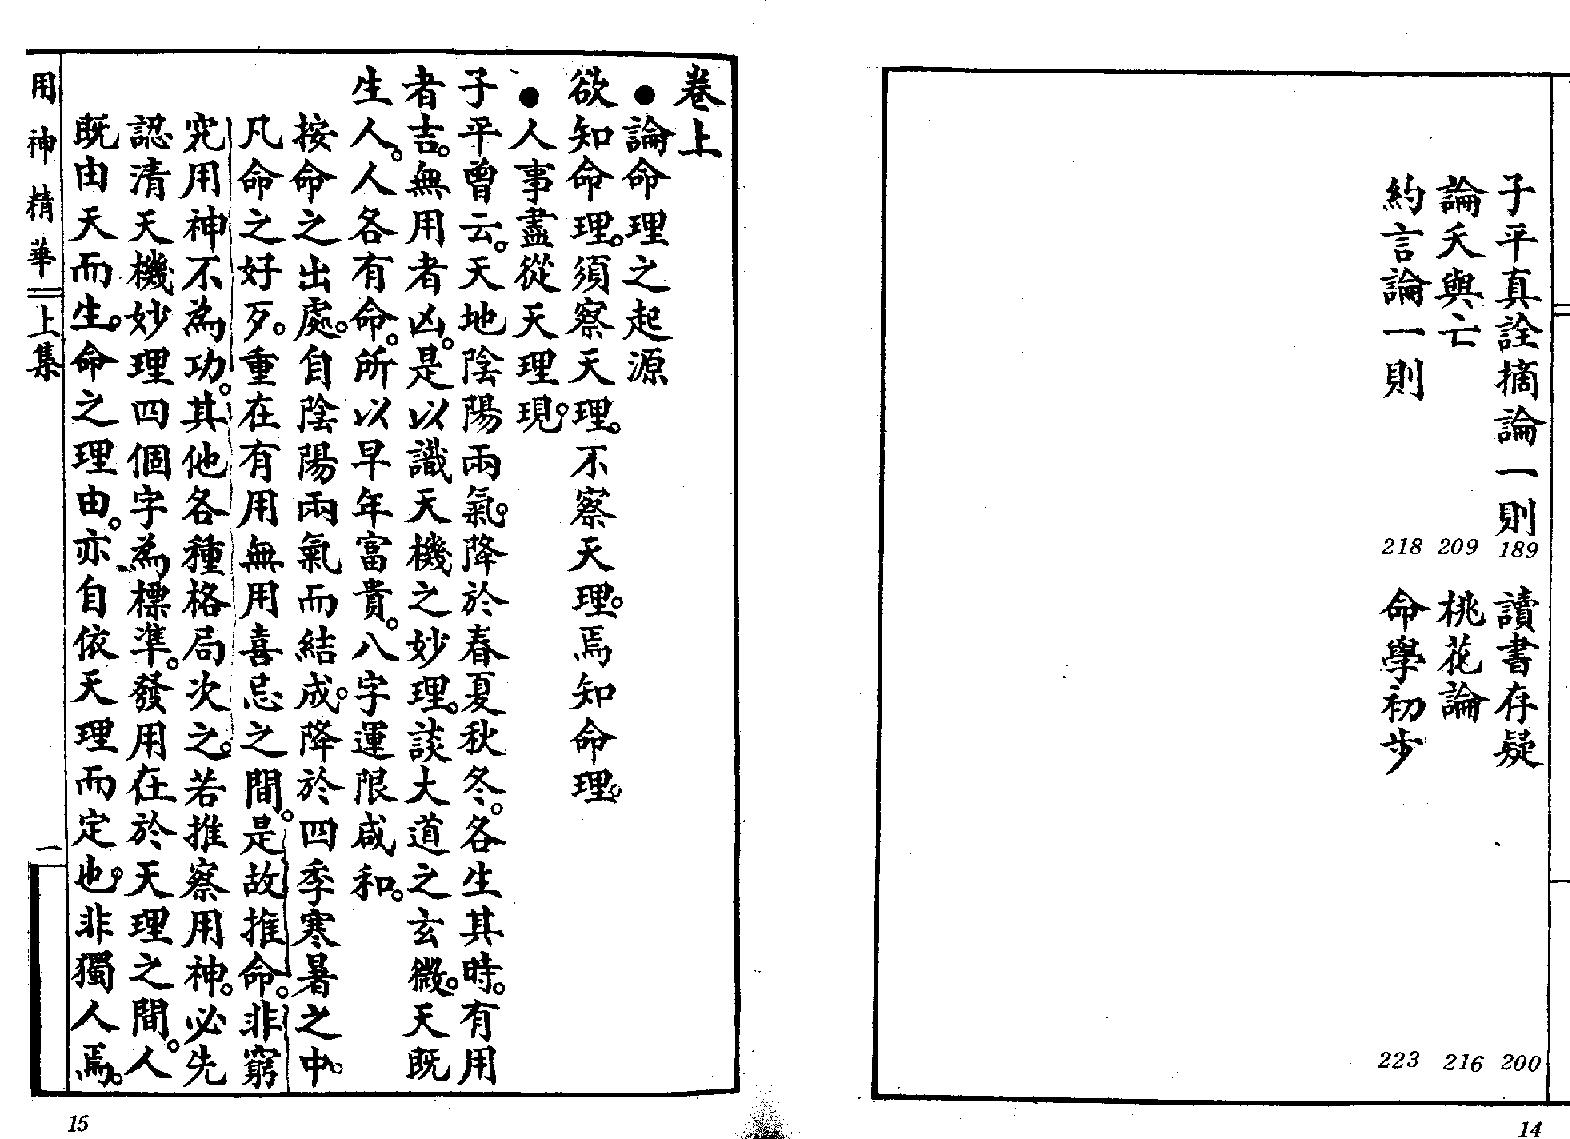 子平真詮摘論一則 189
讀書存疑 200
論夭與亡 209
桃花論 216
約言論一則 218
命學初步 223
14
卷上
●論命理之起源
欲知命理。須察天理。不察天理。焉知命理。
●人事盡從天理現。
子平曾云。天地陰陽兩氣。降於春夏秋冬。各生其時。有用
者吉。無用者凶。是以識天機之妙理。談大道之玄微。天既
生人。人各有命。所以早年富貴。八字運限咸和。
按命之出處。自陰陽兩氣而結成。降於四季寒暑之中。
凡命之好歹。重在有用無用喜忌之間。是故推命。非窮
究用神不為功。其他各種格局次之。若推察用神。必先
認清天機妙理四個字為標準。發用在於天理之間。人
既由天而生。命之理由。亦自依天理而定也。非獨人焉。
用神精華 上集
一
15